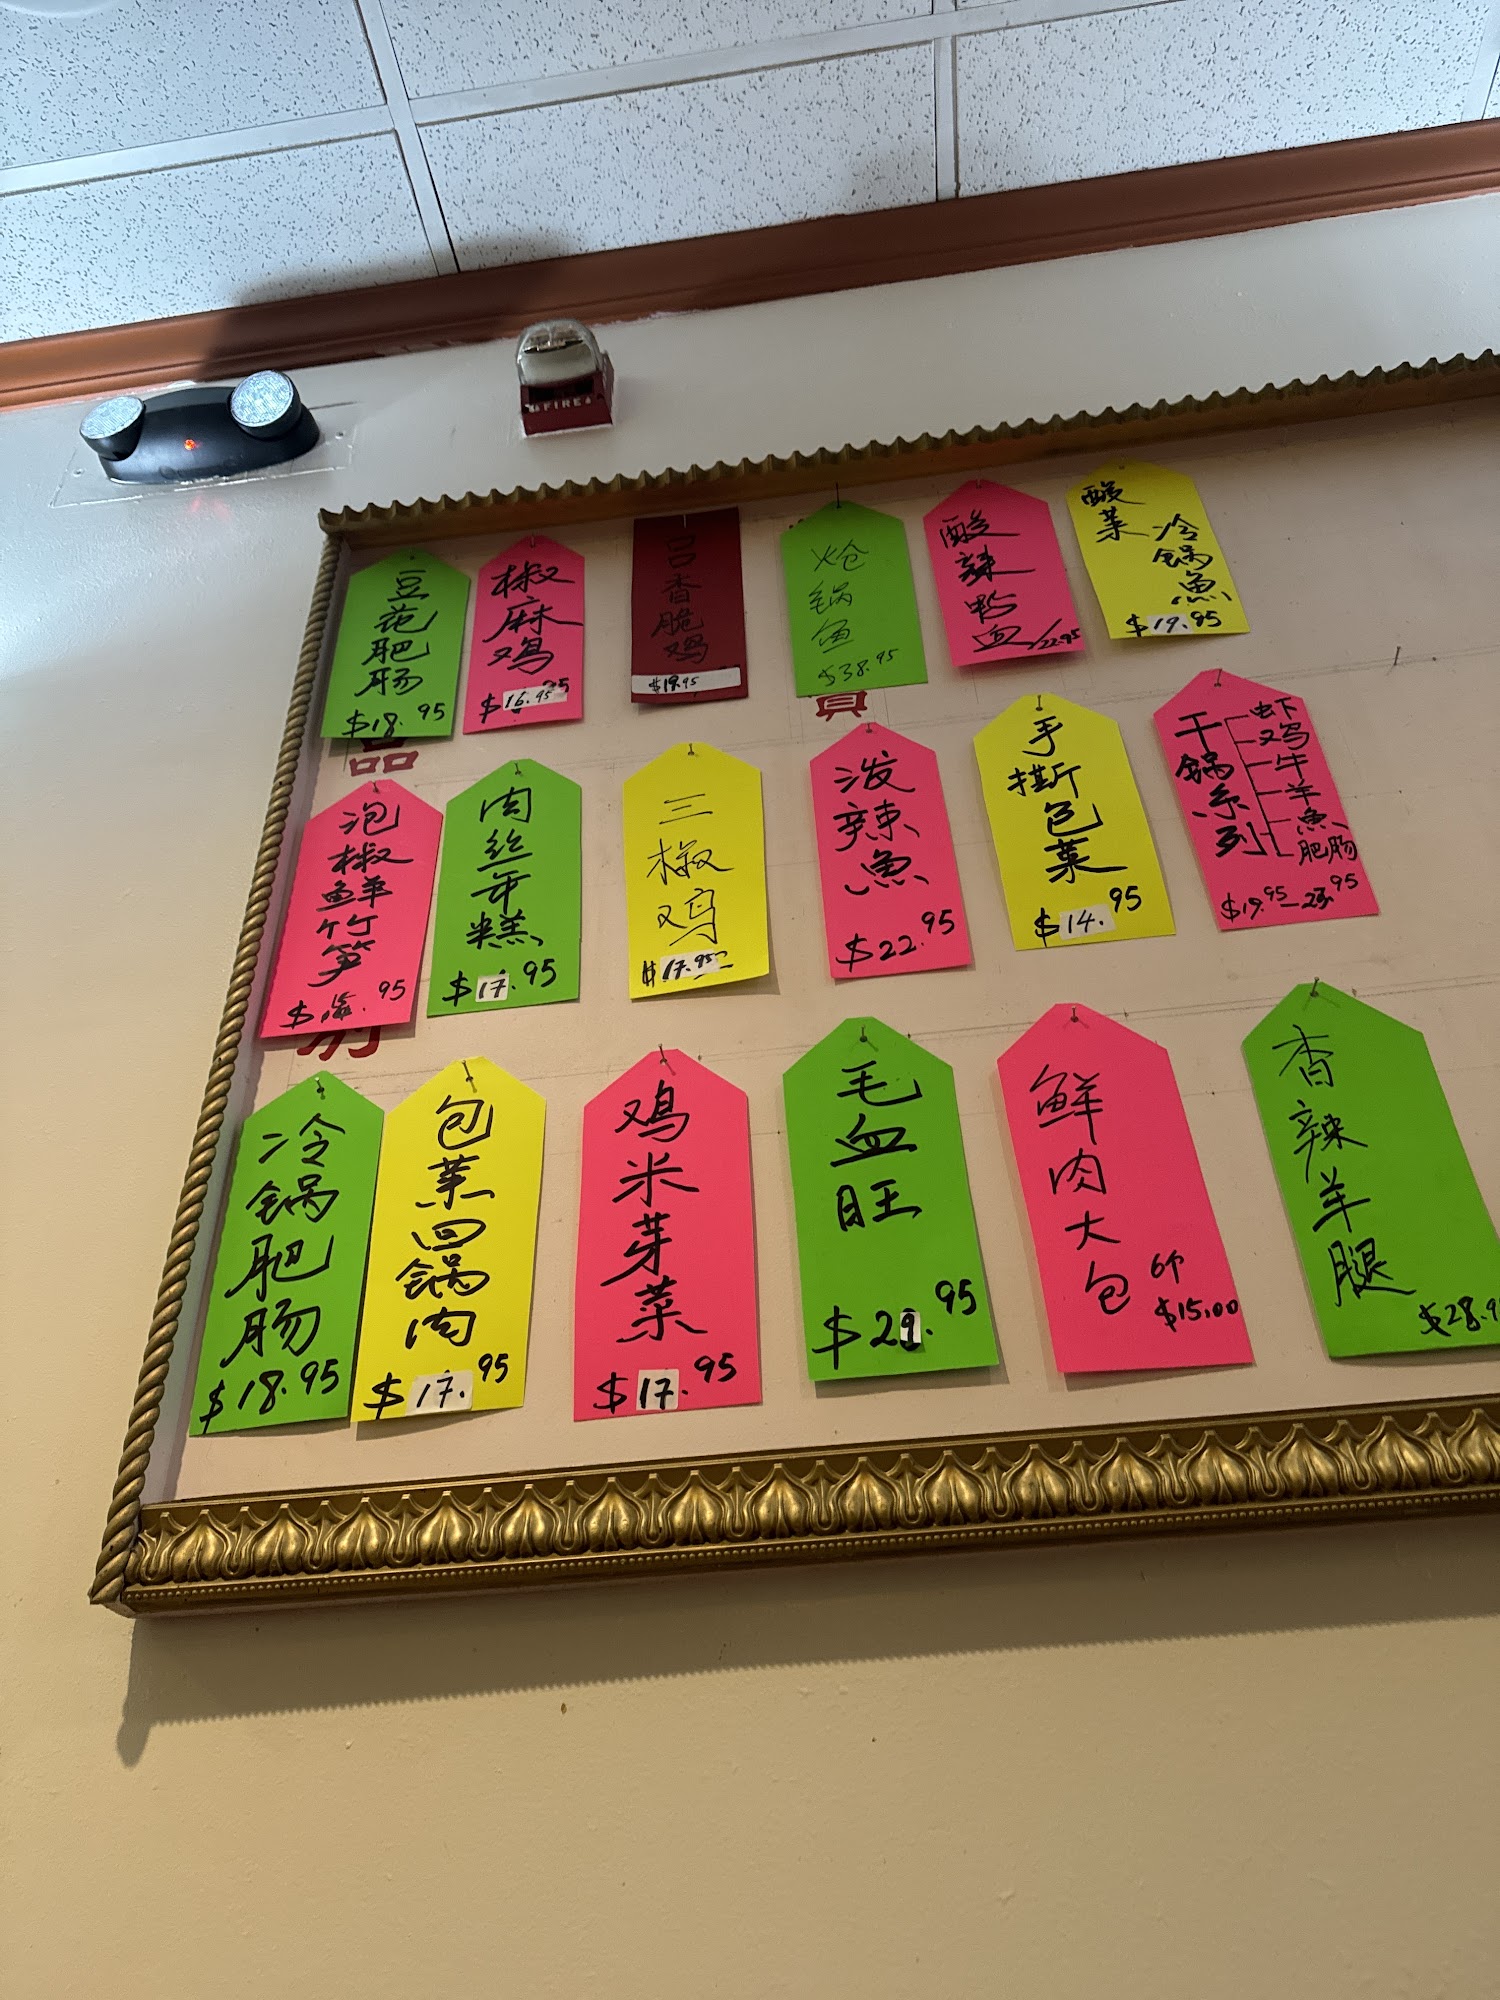 FIRE
豆花肥肠
$18.95
椒麻鸡
$16.95
口口香脆鸡
$19.95
炝锅鱼
$38.95
酸辣鸭血
/22.95
酸菜
冷锅魚
$19.95
品
泡椒鲜竹笋
.95
肉丝年糕
$17.95
三椒鸡
$17.95
泼辣魚
$22.95
手撕包菜
$14.95
干锅系列
虾
鸡
牛
羊
魚
肥肠
$19.95-23.95
冷锅肥肠
$18.95
包菜回锅肉
$17.95
鸡米芽菜
$17.95
毛血旺
$29.95
鲜肉大包
6个
$15.00
香辣羊腿
$28.9